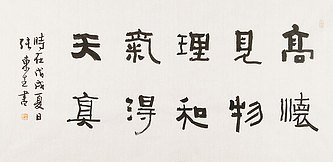 高懷
見物
理和
氣得
天真
時在戊戌夏日
張東之書